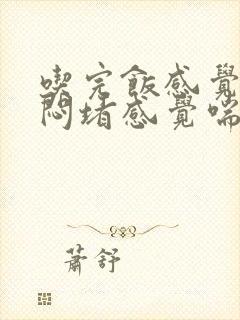 喫完飯感覺
悶堵感覺喘
蕭舒